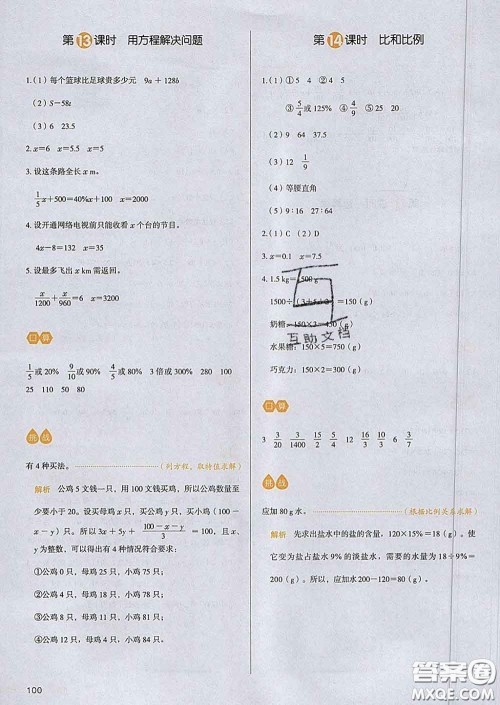 第13课时 用方程解决问题
1.(1)每个篮球比足球贵多少元 9a+128b
(2)S-58t
(3)6 23.5
2. x=6 x=5.5
3. 设这条路全长 x m。
1/5x+500=40%x+100 x=2000
4. 设开通网络电视前只能收看 x 个台的节目。
4x-8=132 x=35
5. 设最多飞出 x km 需返回。
x/1200+x/960=6 x=3200
口算
1/5或20% 9/10或90% 4/5或80% 3倍或300% 280 100
110 250
挑战
有4种买法。(列方程,取特值求解)
解析 公鸡5文钱一只,用100文钱买鸡,所以公鸡数量至
少要小于20。设买母鸡 x 只,公鸡 y 只,则小鸡买(100-
x-y)只。所以3x+5y+(100-x-y)/3=100(且x、y和100-x-y
为整数),可以得出有4种情况符合要求:
①公鸡0只,母鸡25只,小鸡75只;
②公鸡4只,母鸡18只,小鸡78只;
③公鸡8只,母鸡11只,小鸡81只;
④公鸡12只,母鸡4只,小鸡84只。
100
第14课时 比和比例
1.(1)①5 4 ②5
③5/4或125% ④4/9 ⑤25 20
(2)9 64 37.5
(3)12 1/9
(4)等腰直角
(5)9:16 27:64
2.(1)C (2)D
3. x=0.1 x=7.5
4. 1.5 kg=1500 g
1500÷(3+5+2)=150(g)
奶糖:150×3=450(g)
水果糖:150×5=750(g)
巧克力:150×2=300(g)
互助文档
口算
3 3/20 3/1400 15/2 5/4 15/4 6 3/7
挑战
应加80 g水。(根据比例关系求解)
解析 先求出盐水中的盐的含量,120×15%=18(g)。使
它变为盐占盐水9%的淡盐水,需要的水量为18÷9%=
200(g)。所以,应加水200-120=80(g)。
答案圈
MXQE.COM